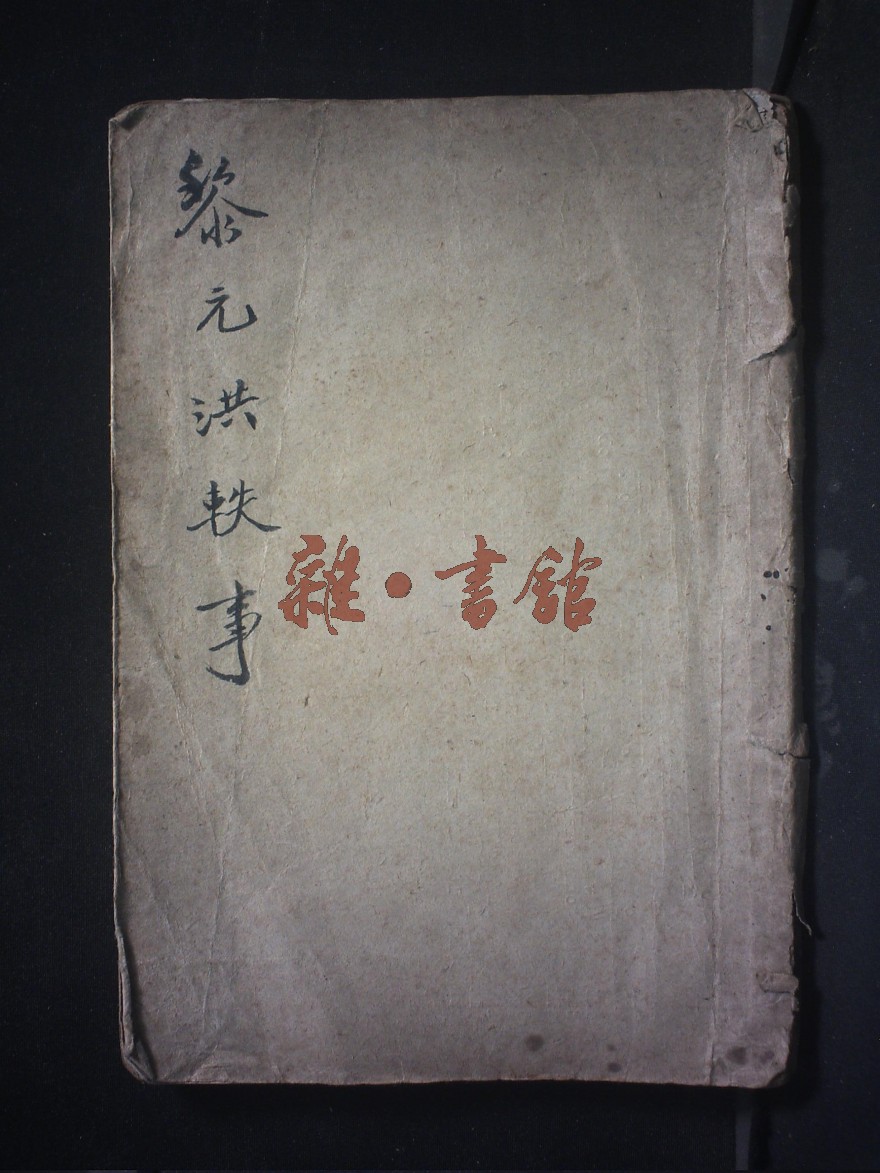 黎元洪軼事
雜·書館